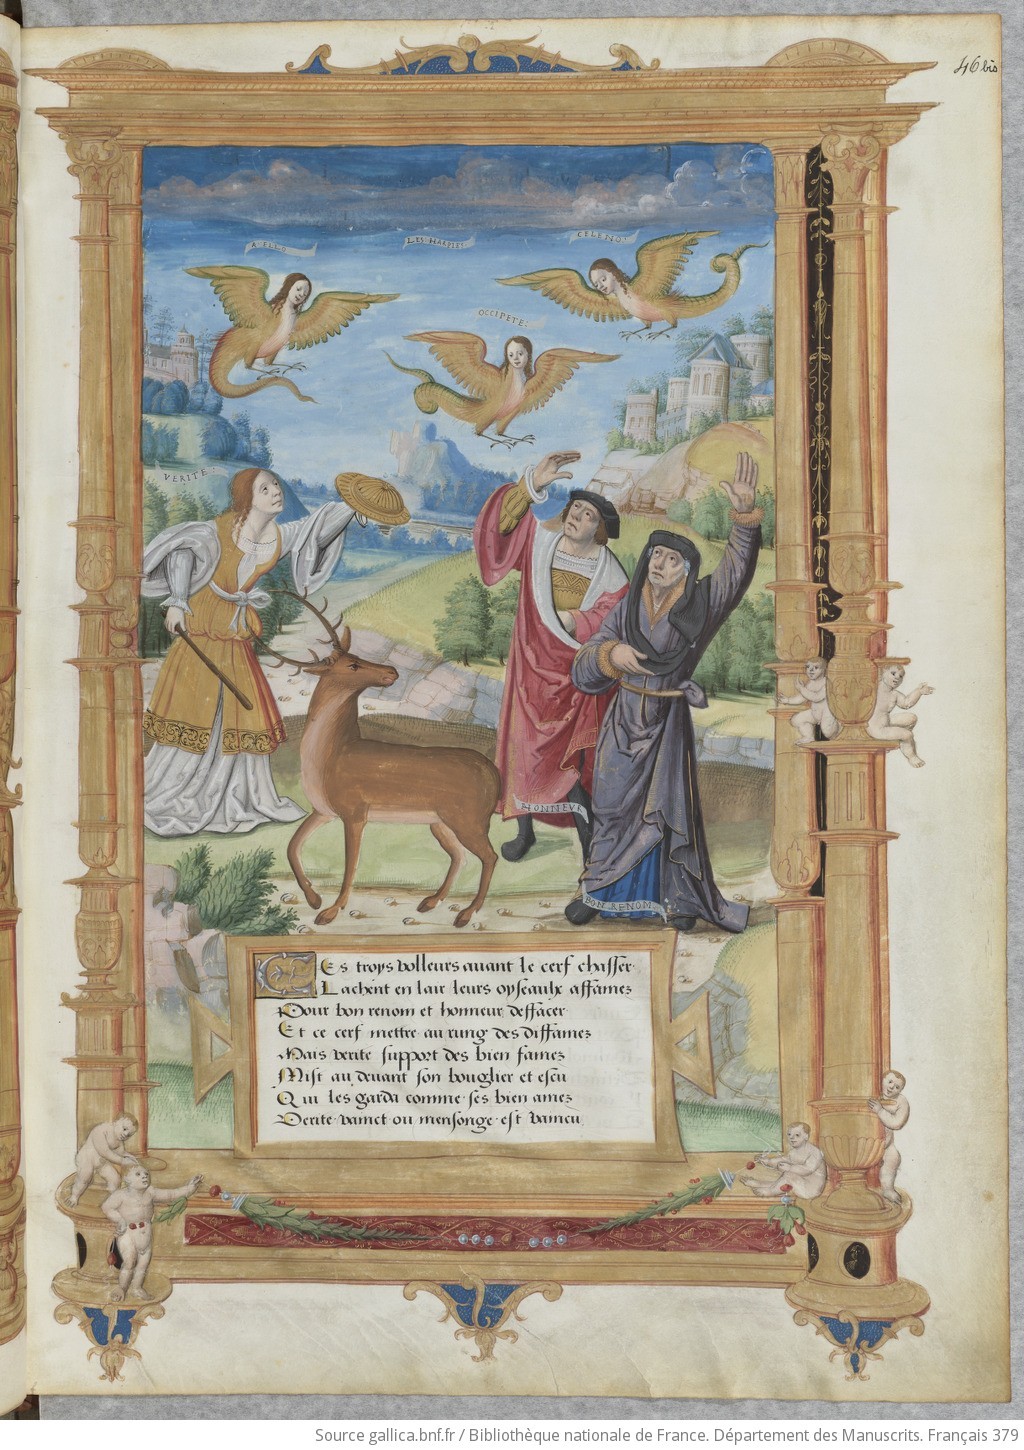 46 bis
AELLO
LES HARPIES
CELENO:
OCCIPETE:
VERITE:
HONNEUR
BON RENOM
Ces troys volleurs auant le cerf chasser
Lachent en lair leurs oyseaulx affamez
Pour bon renom et honneur deffacer
Et ce cerf mettre au rung des diffamez
Mais verite support des bien famez
Mist au deuant son bouglier et escu
Qui les garda comme ses bien amez
Verite vainct ou mensonge est vaincu
Source gallica.bnf.fr / Bibliothèque nationale de France. Département des Manuscrits. Français 379